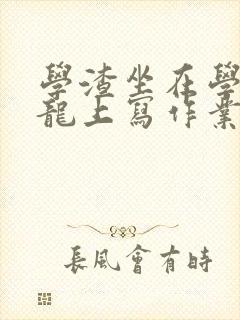 學渣坐在學
龍上寫作業
長風會有時